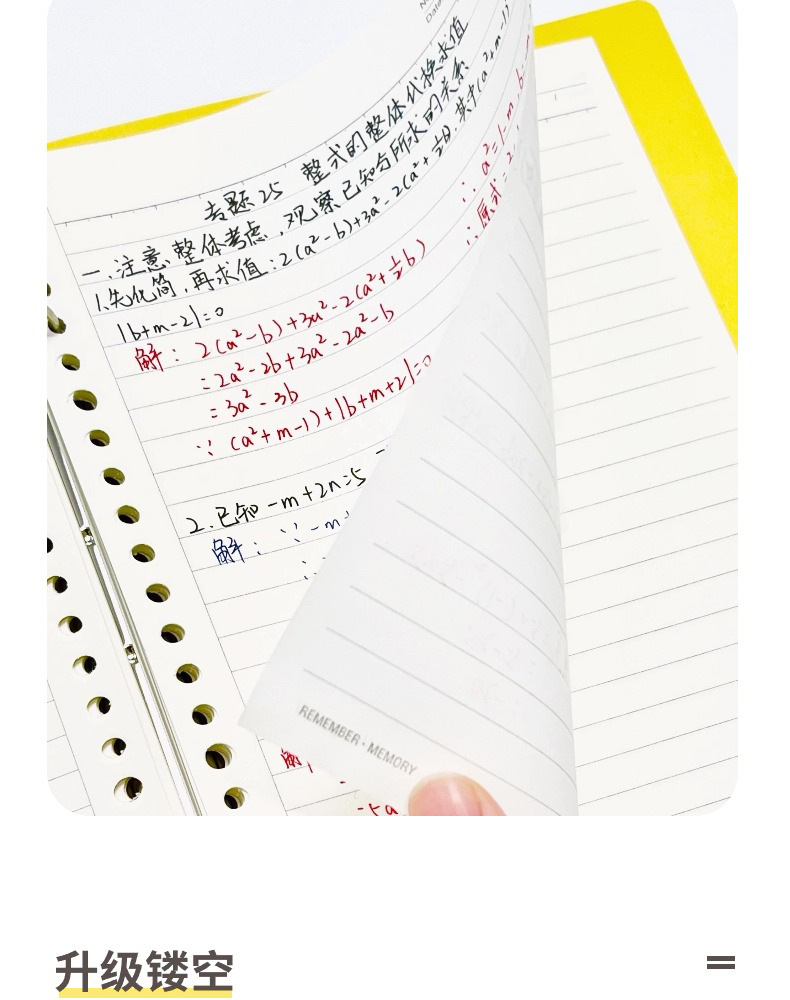 专题25 整式的整体代换求值
一、注意整体考虑，观察已知与所求的关系
1.先化简，再求值：2(a²-b)+3a²-2(a²+½b).其中(a²+m-1)
|b+m-2|=0
解：2(a²-b)+3a²-2(a²+½b)
=2a²-2b+3a²-2a²-b
=3a²-3b
∵ (a²+m-1)+|b+m+2|=0
∴ a²=1-m, b=
∴ 原式=
2.已知 -m+2n=5
解：∵ -m+
∴
解
-5a
REMEMBER·MEMORY
升级镂空